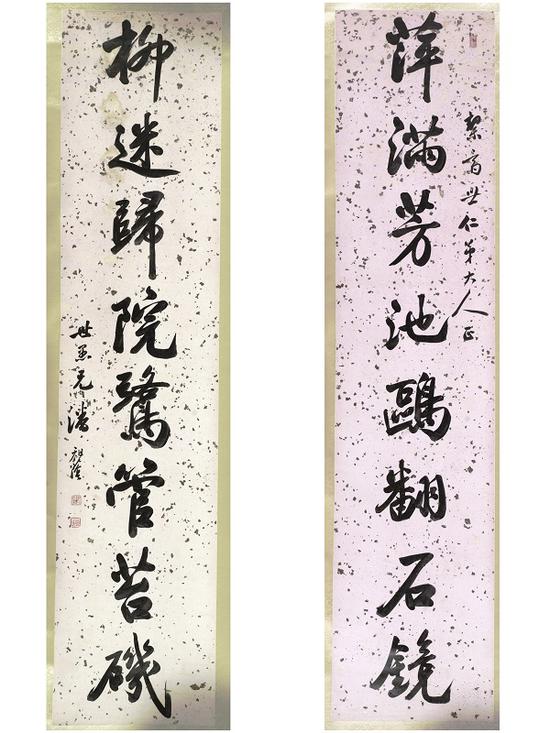 萍滿芳池鷗翻石鏡
世仁弟大人正
柳迷歸院鷺管苔磯
世愚兄潘祖蔭